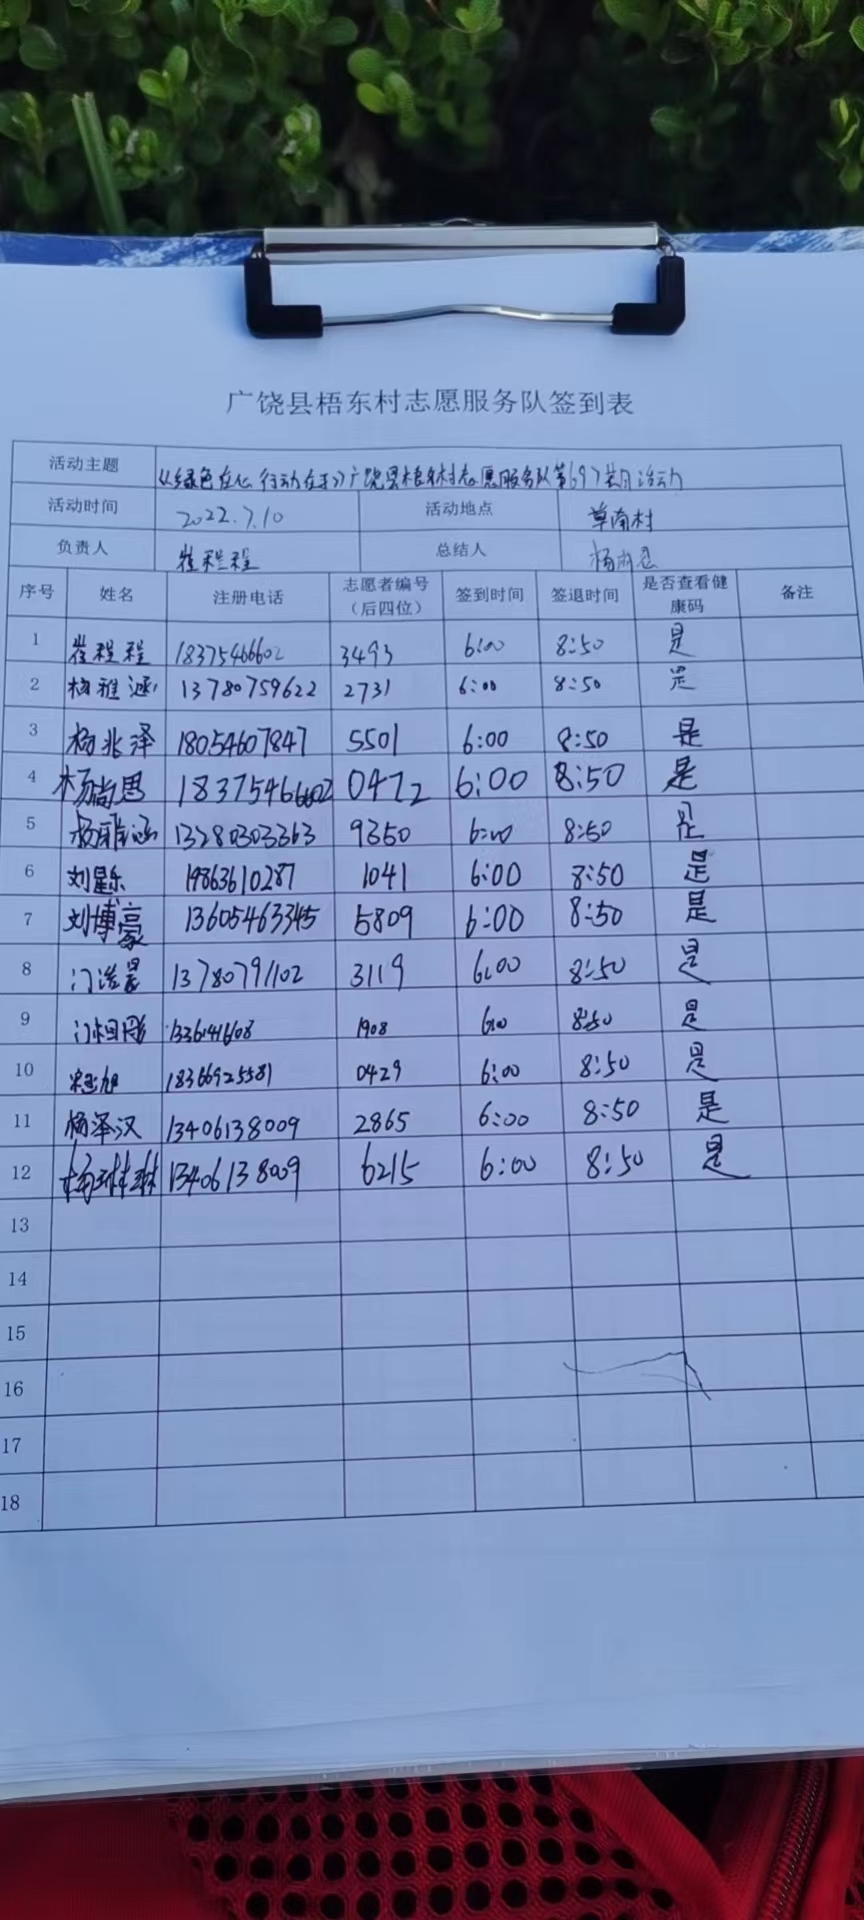 广饶县梧东村志愿服务队签到表
活动主题 《绿色在心 行动在手》广饶县梧东村志愿服务队第697期活动
活动时间 2022.7.10 活动地点 草南村
负责人 崔程程 总结人 杨尚恩
序号 姓名 注册电话 志愿者编号（后四位） 签到时间 签退时间 是否查看健康码 备注
1 崔程程 18375466602 3493 6:00 8:50 是
2 杨雅涵 13780759622 2731 6:00 8:50 是
3 杨兆泽 18054607847 5501 6:00 8:50 是
4 杨尚恩 18375466602 0472 6:00 8:50 是
5 杨雅涵 13280303363 9350 6:00 8:50 是
6 刘星乐 19863610287 1041 6:00 8:50 是
7 刘博豪 13605463345 5809 6:00 8:50 是
8 门浩晨 13780791102 3119 6:00 8:50 是
9 1908 6:00 8:50 是
10 18366925581 0429 6:00 8:50 是
11 杨泽汉 13406138009 2865 6:00 8:50 是
12 杨琳琳 13406138009 6215 6:00 8:50 是
13
14
15
16
17
18